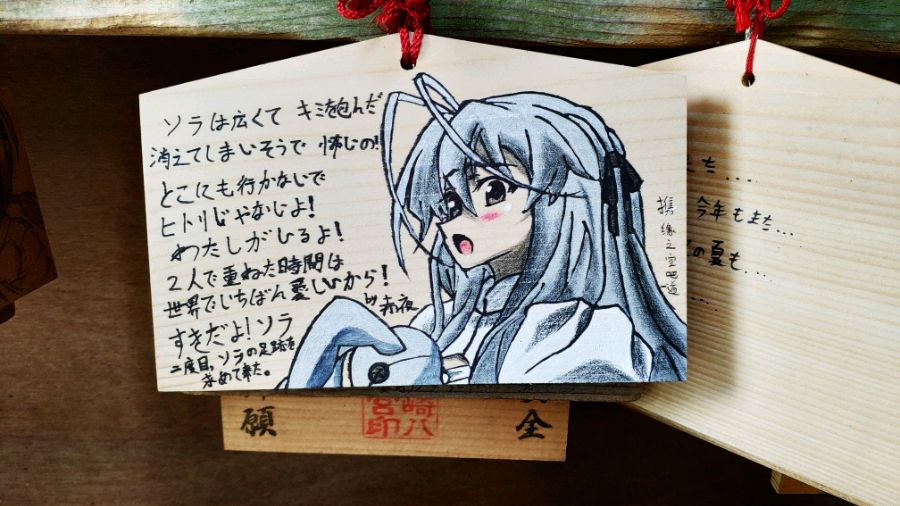 ソラは広くて キミを包んだ
消えてしまいそうで 怖いの!
どこにも行かないで
ヒトリじゃないよ!
わたしがいるよ!
2人で重ねた時間は
世界でいちばん愛しいから!
by 赤夜
すきだよ!ソラ
二度目、ソラの足跡を
求めて来た。
携缘之空吧
今年もまた...
夏も...
願
崎八
宮印
全